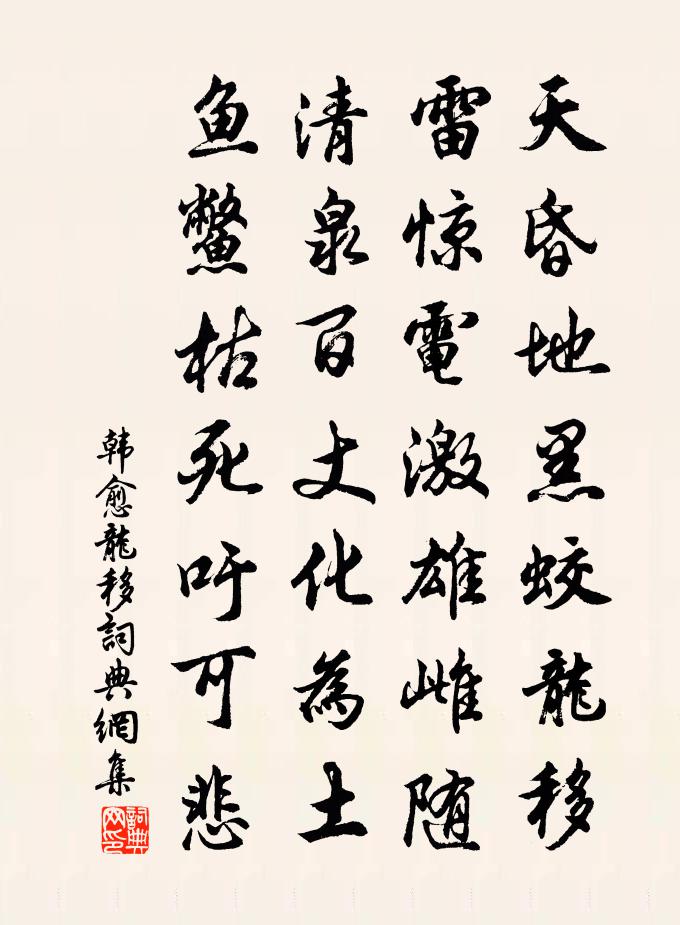 天昏地黑蛟龍移
雷惊電激雄雌随
清泉百丈化為土
鱼鳖枯死吁可悲
韩愈龍移詞典網集
詞典
网印